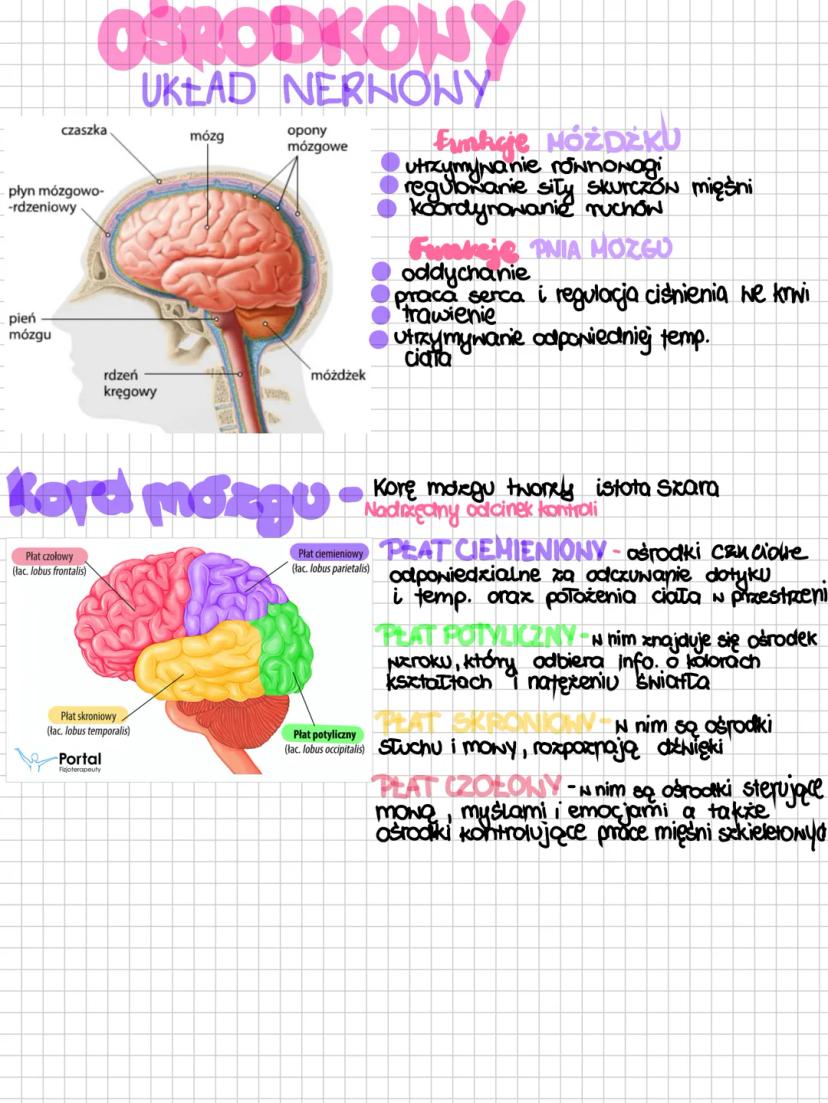 OŚRODKOWY
UKŁAD NERWOWY
czaszka
mózg
opony
mózgowe
płyn mózgowo-
-rdzeniowy
pień
mózgu
rdzeń
kręgowy
móżdżek
Funkcje MÓŻDŻKU
utrzymywanie równowagi
regulowanie siły skurczów mięśni
koordynowanie ruchów
Funkcje PNIA MÓZGU
oddychanie
praca serca i regulacja ciśnienia we krwi
trawienie
utrzymywanie odpowiedniej temp.
ciała
Kora mózgu - Korę mózgu tworzy istota szara
Nadrzędny odcinek kontroli
Płat czołowy
(łac. lobus frontalis)
Płat ciemieniowy
(łac. lobus parietalis)
Płat skroniowy
(łac. lobus temporalis)
Płat potyliczny
(łac. lobus occipitalis)
Portal
Fizjoterapeuty
PŁAT CIEMIENIOWY - ośrodki czuciowe
odpowiedzialne za odczuwanie dotyku
i temp. oraz położenia ciała w przestrzeni
PŁAT POTYLICZNY - w nim znajduje się ośrodek
wzroku, który odbiera info. o kolorach
kształtach i natężeniu światła
PŁAT SKRONIOWY - w nim są ośrodki
słuchu i mowy, rozpoznają dźwięki
PŁAT CZOŁOWY - w nim są ośrodki sterujące
mową, myślami i emocjami a także
ośrodki kontrolujące pracę mięśni szkieletowych